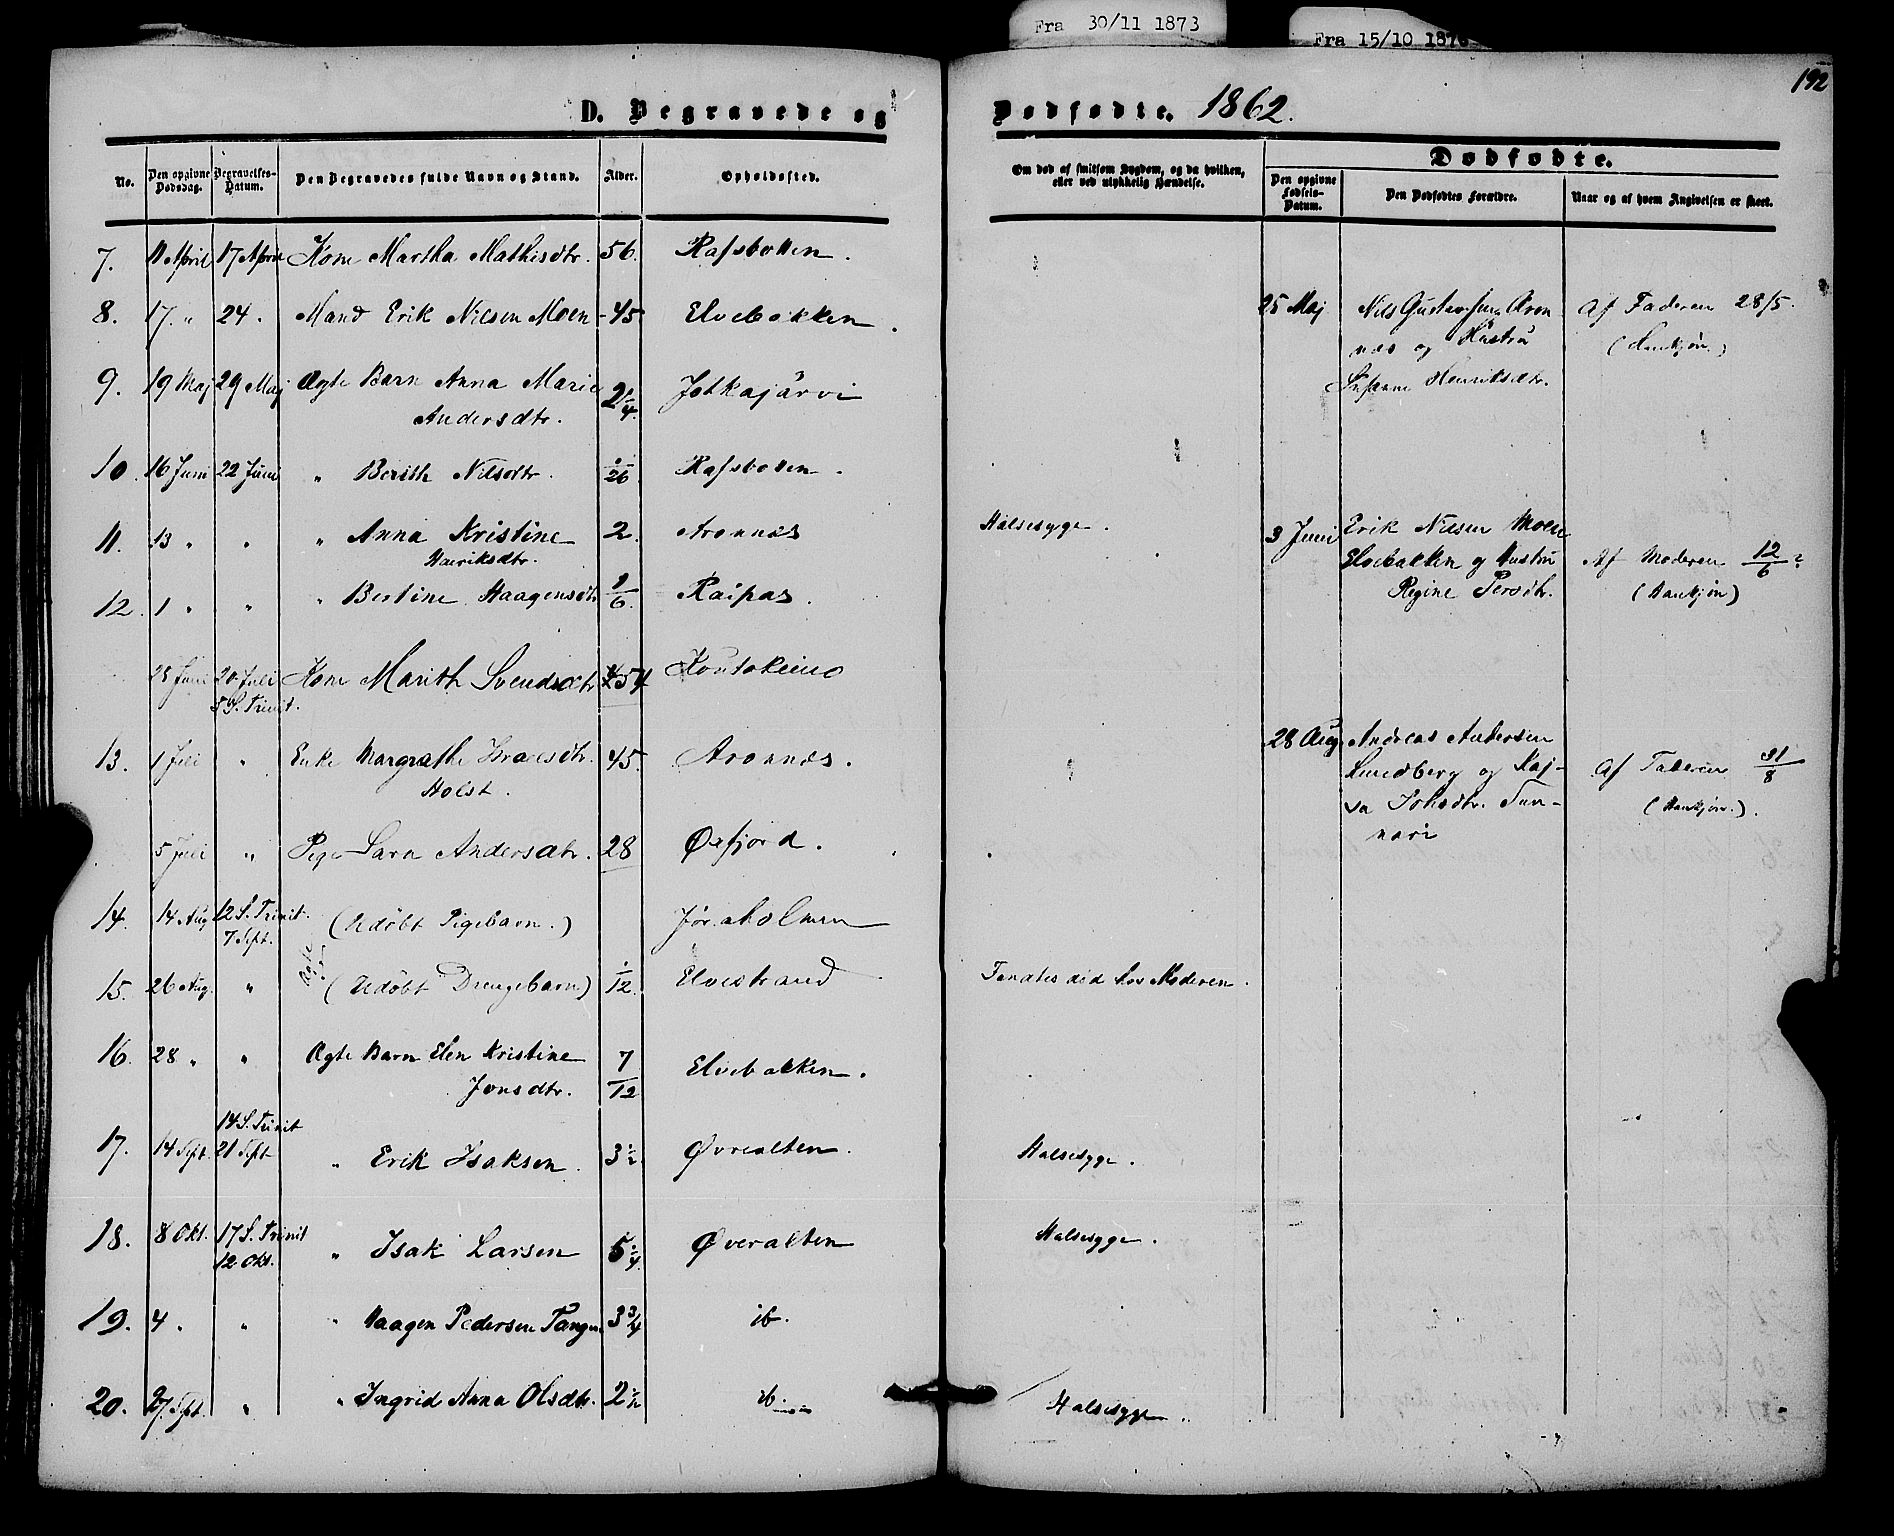 Fra 30/11 1873
Fra 15/10 187
192
D. Begravede og Dødfødte. 1862.
No. Den opgivne Dødsdag. Begravelses-Datum. Den Begravedes fulde Navn og Stand. Alder. Opholdssted. Om død af smitsom Sygdom, og da hvilken, eller ved ulykkelig Hændelse.
Dødfødte.
Den opgivne Fødsels-Datum. Den Dødfødtes Forældre. Naar og af hvem Angivelsen er skeet.
7. 11 April 17 April Kone Martha Mathisdtr. 56. Rafsbotten.
8. 17. " 24. Mand Erik Nilsen Moen - 45 Elvebakken.
9. 19 Maj 29 Maj Ægte Barn Anna Marie 2 1/4. Jotkajärvi
Andersdtr.
10. 16 Juni 22 Juni " Berith Nilsdtr. 1/26 Rafsbotten.
11. 13 " " " Anna Kristine 2. Aronnæs Halsesyge.
Henriksdtr.
12. 1 " " " Bertine Haagensdtr 1/6. Raipas.
28 Juni 20 Juli Kone Marith Svendsdtr 54 Koutokeino
5 S. Trinit.
13. 1 Juli " Enke Margrethe Israelsdtr. 45. Aronnæs.
Holst.
5 Juli " Pige Sara Andersdtr. 28 Øxfjord.
14. 14 Aug 12 S. Trinit. (Udøbt Pigebarn.) Jøraholmen
7 Sept.
15. 26 Aug. " Ægte (Udøbt Drengebarn) 1/12. Elvestrand Fandtes død hos Moderen.
16. 28 " " Ægte Barn Elen Kristine 7/12 Elvebakken.
Jonsdtr.
14 S. Trinit
17. 14 Sept. 21 Sept " Erik Isaksen. 3 1/2. Øvrealten. Halsesyge.
18. 8 Okt. 17 S. Trinit " Isak Larsen 5 1/4. Øveralten Halsesyge.
12. Okt.
19. 4 " " " Haagen Pedersen Tangen 3 3/4 ib.
20. 27. Sept. " " Ingrid Anna Olsdtr. 2 1/2 ib. Halsesyge.
25 Maj Nils Gustavsen Aron Af Faderen 28/5.
næs og Hustru (Hankjøn.)
Susanne Henriksdtr.
3 Juni Erik Nilsen Moen
Elvebakken og Hustru Af Moderen 12/6
Regine Persdtr. (Hankjøn)
28 Aug. Andreas Andersen
Lundberg og Kaj- Af Faderen 31/8
sa Johsdtr. Tun- (Hankjøn.).
nari